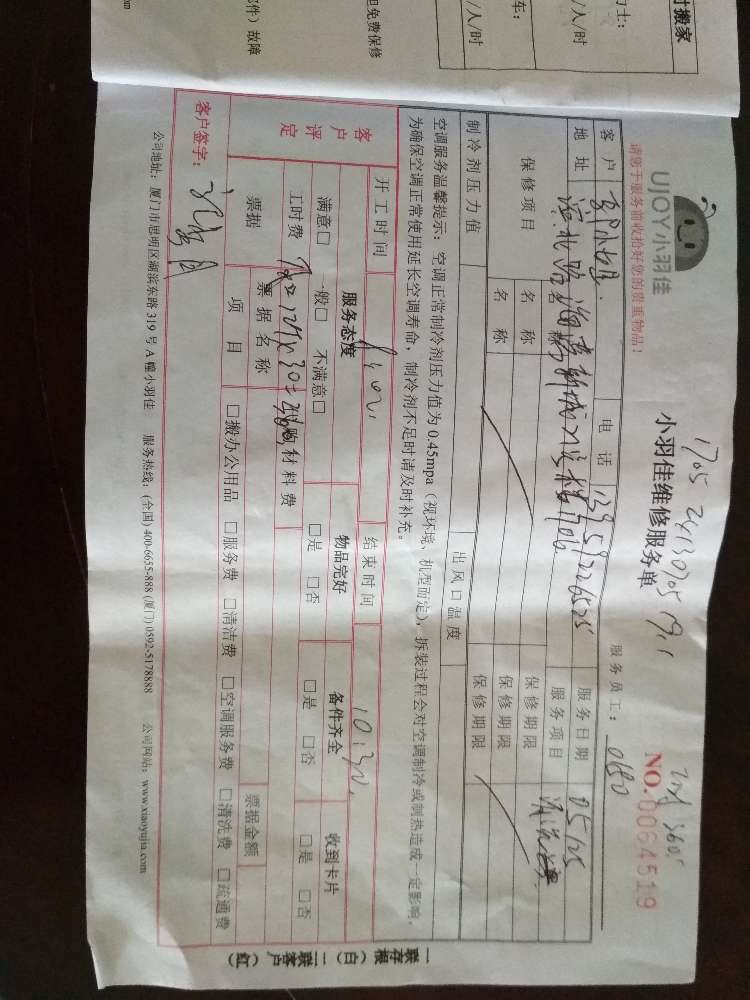 时搬家
力士：
/人/时
/人/时
车：
但免费保修
部件）故障
om
UJOY小羽佳
请您于服务前收拾好您的贵重物品！
小羽佳维修服务单
服务员工：0180
NO.0064519
客户
小姐
电话
服务日期
05/05
地址
滨北路
服务项目
清洗
保修项目
名称
保修期限
名称
保修期限
保修期限
制冷剂压力值
出风口温度
空调服务温馨提示：空调正常制冷剂压力值为0.45mpa（视环境、机型而定），拆装过程会对空调制冷或制热造成一定影响，
为确保空调正常使用延长空调寿命，制冷剂不足时请及时补充。
开工时间
结束时间
10:30
客户评定
服务态度
物品完好
备件齐全
收到卡片
满意□ 一般□ 不满意□
□是 □否
□是 □否
□是 □否
工时费
购材料费
票据
票据名称
票据金额
项目
□搬办公用品 □服务费 □清洁费 □空调服务费 □清洗费 □疏通费
客户签字：
公司地址：厦门市思明区湖滨东路319号A幢小羽佳 服务热线：(全国) 400-6655-888 (厦门) 0592-5178888 公司网站：www.xiaoyujia.com
一联存根（白）二联客户（红）